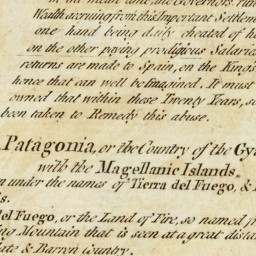 Wealth accruing from this Important Settlem
one hand being daily cheated of h
on the other paying prodigious Salaries
returns are made to Spain, on the Kings
hence that can well be Imagined. It must
owned that within these Twenty Years, so
been taken to Remedy this abuse.
Patagonia, or the Country of the Gy
with the Magellanic Islands.
n under the names of Tierra del Fuego, &
s.
del Fuego, or the Land of Fire, so named fr
ng Mountain that is seen at a great distan
ate & Barren Country.